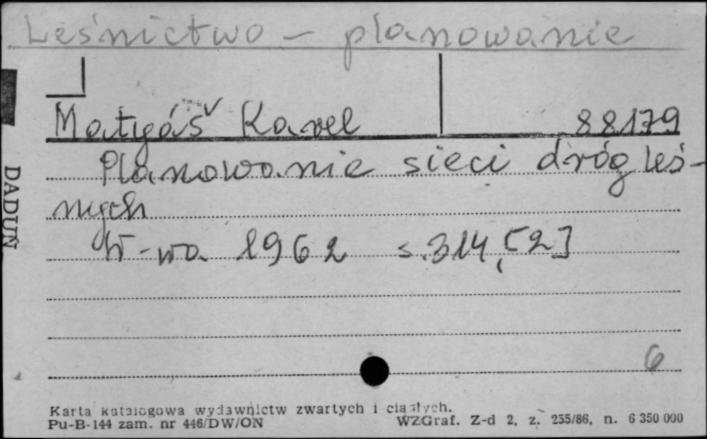 Leśnictwo – planowanie
Matyáš Karel 88179
Planowanie sieci dróg leś-
nych
W-wa 1962 s. 314, [2]
DADUŃ
6
Karta katalogowa wydawnictw zwartych i ciągłych.
Pu-B-144 zam. nr 446/DW/ON WZGraf. Z-d 2, z. 255/86, n. 6 350 000